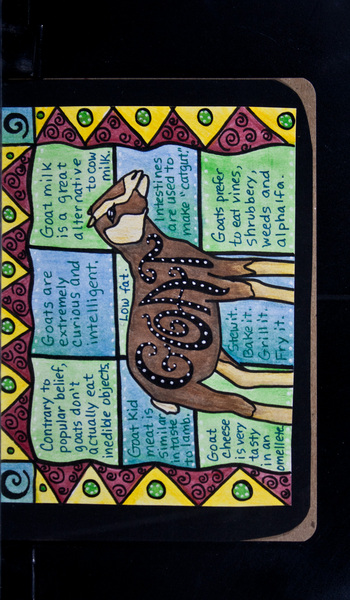 Contrary to
popular belief,
goats don't
actually eat
inedible objects.
Goats are
extremely
curious and
intelligent.
Goat milk
is a great
alternative
to cow
milk.
Goat Kid
meat is
similar
in taste
to lamb.
Low fat.
GOAT
Intestines
are used to
make "catgut."
Goat
cheese
is very
tasty
in an
omellete.
Stew it.
Bake it.
Grill it.
Fry it.
Goats prefer
to eat vines,
shrubbery,
weeds and
alphalfa.